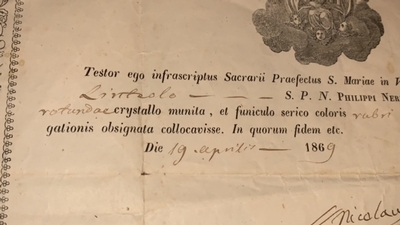 Testor ego infrascriptus Sacrarii Praefectus S. Mariae in V
Linteolo — S. P. N. Philippi Ner
rotundae crystallo munita, et funiculo serico coloris rubri
gationis obsignata collocavisse. In quorum fidem etc.
Die 19 Aprilis — 1869
Nicolau